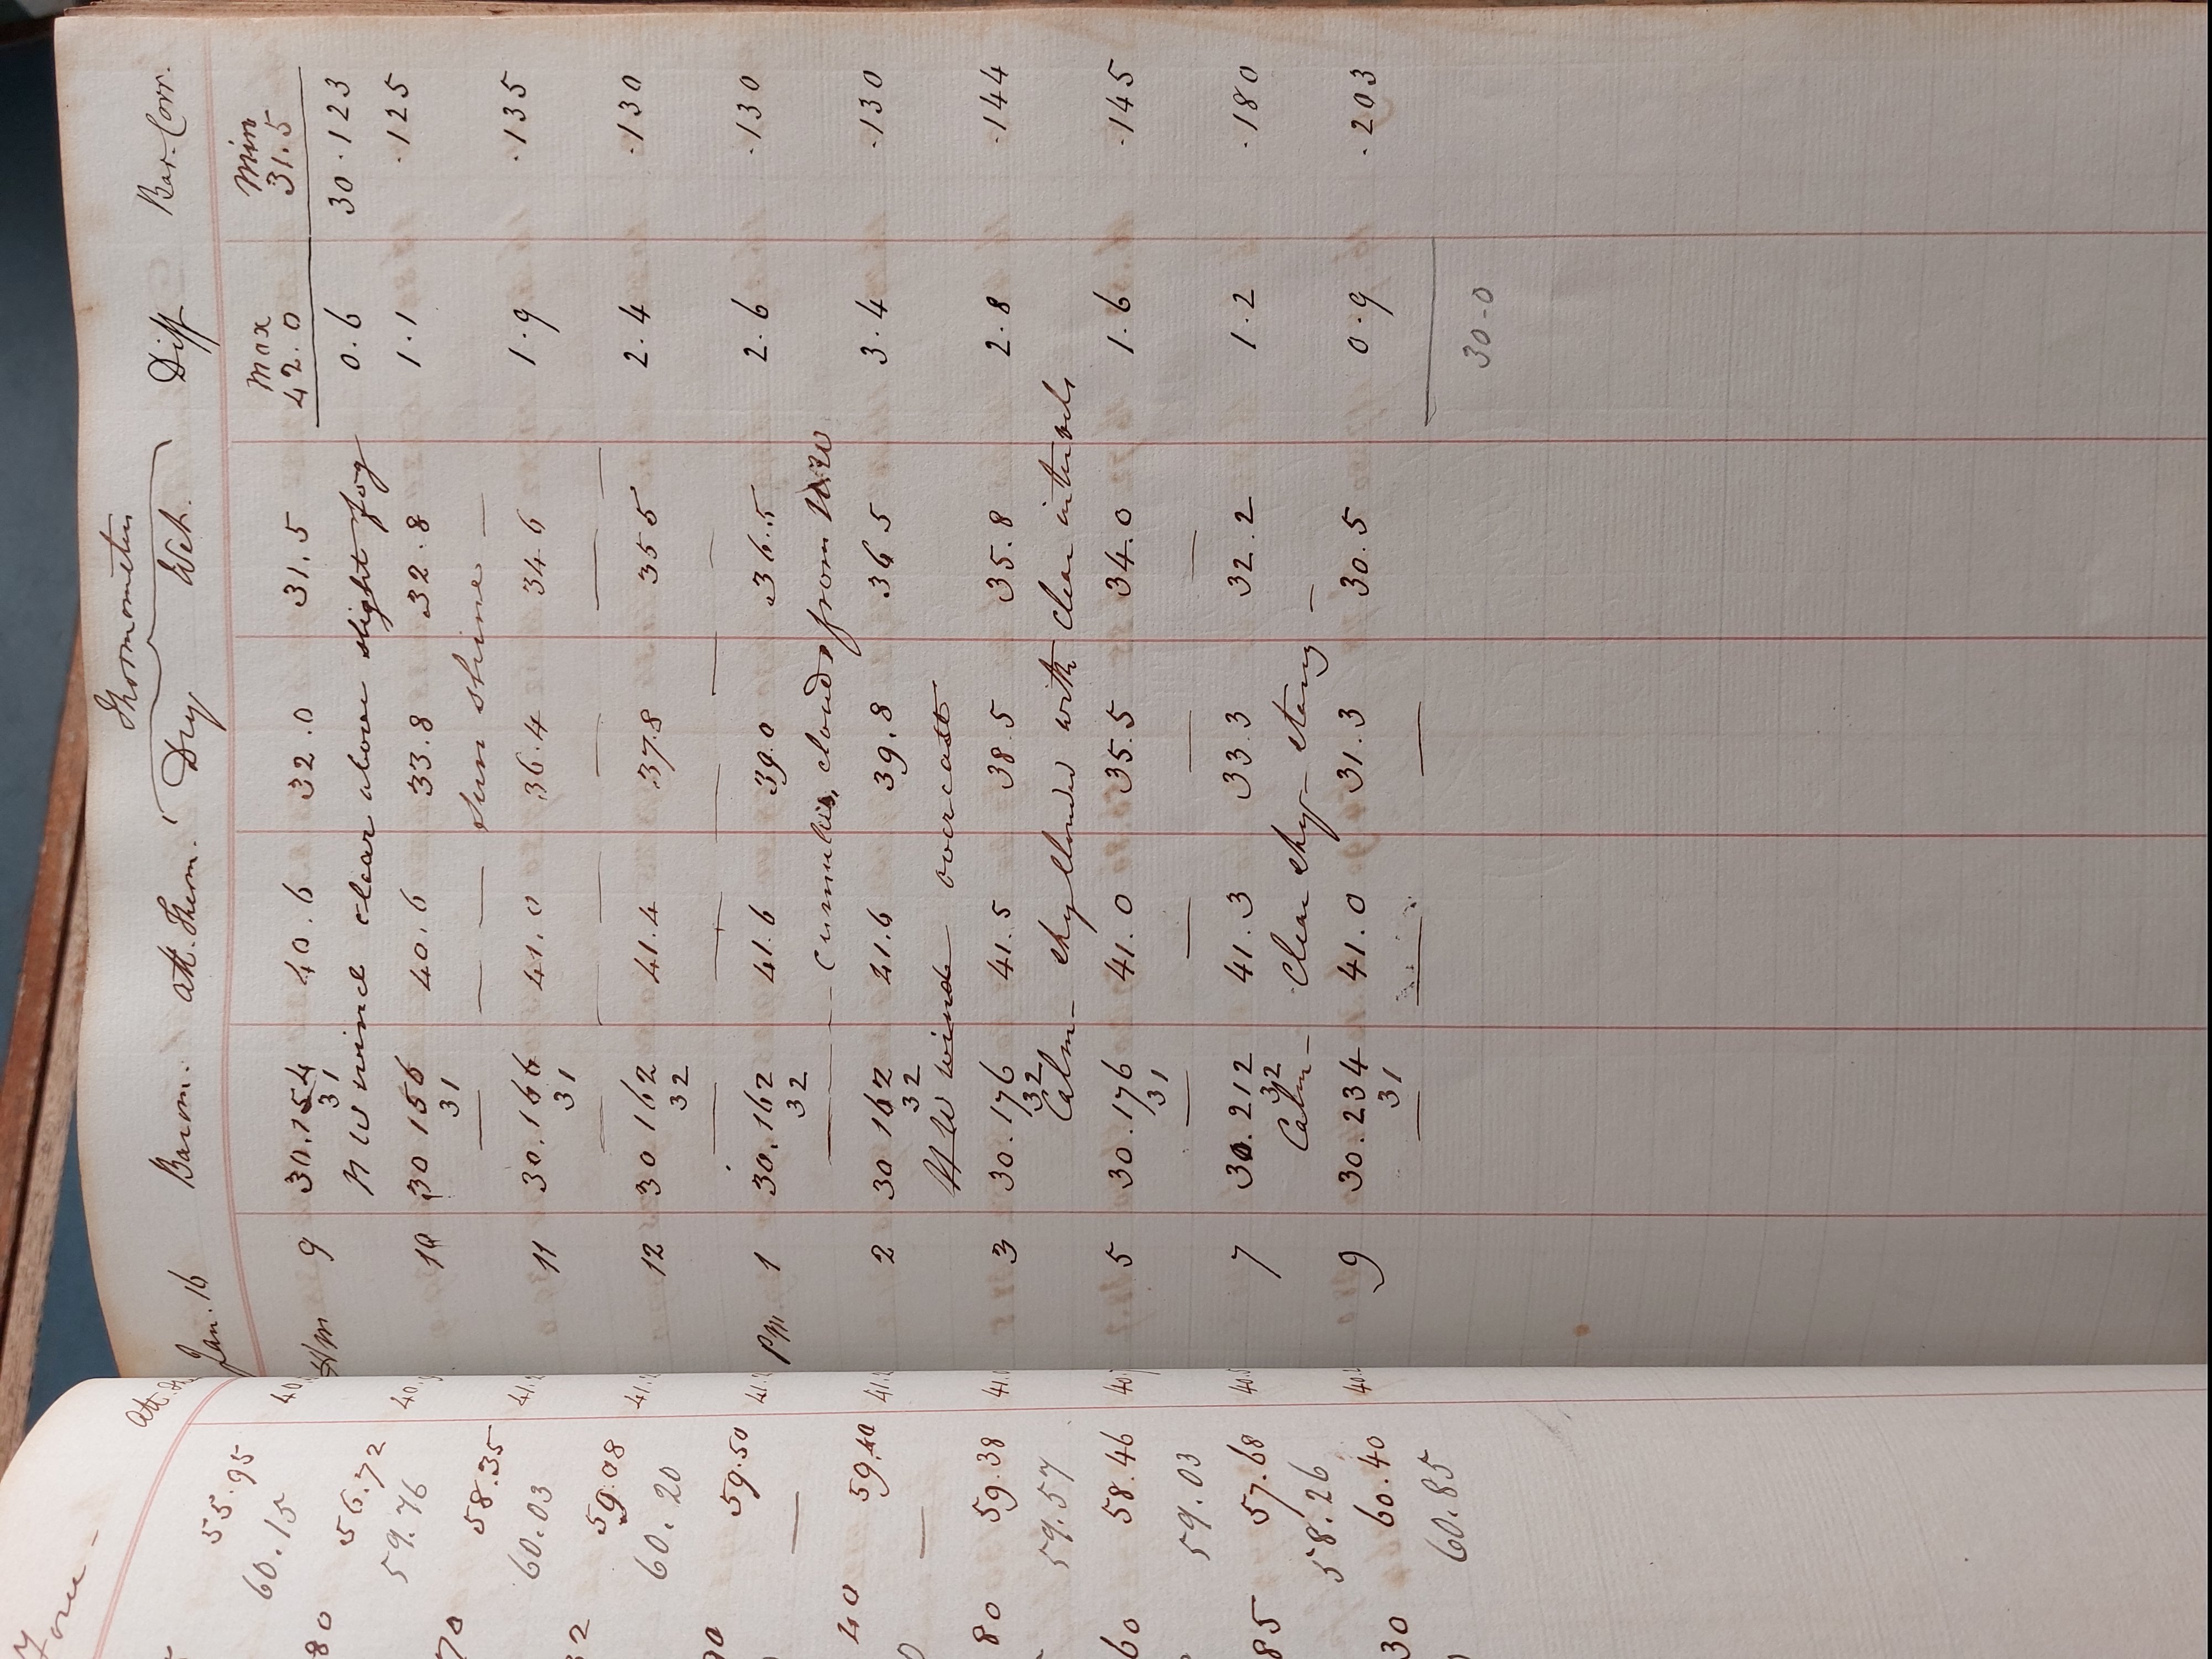 55.95
60.15
80 56.72
59.76
70 58.35
60.03
32 59.08
60.20
90 59.50
40 59.40
80 59.38
59.57
60 58.46
59.03
85 57.68
58.26
30 60.40
60.85
Thermometer
Jan. 16 Barom. Att. Therm. Dry Wet. Diff Bar. Corr.
Max Min
42.0 31.5
Am 9 30.154 40.6 32.0 31.5
31
NW wind clear above slight fog 0.6 30.123
10 30 156 40.6 33.8 32.8 1.1 .125
31
— — — sun shine —
11 30.166 41.0 36.4 34 6 1.9 .135
31
— — — — — —
12 30 162 41.4 37.8 35 5 2.4 .130
32
— — — — —
Pm 1 30.162 41.6 39.0 36.5 2.6 .130
32
— — — cumulus, clouds from NW
2 30 162 41.6 39.8 36 5 3.4 .130
32
NW wind overcast
3 30.176 41.5 38.5 35.8 2.8 .144
32
Calm — sky clouded with clear intervals
5 30.176 41.0 35.5 34.0 1.6 .145
31
— — — —
7 30.212 41.3 33.3 32.2 1.2 .180
32
Calm — clear sky — starry —
9 30.234 41.0 31.3 30.5 0.9 .203
31
— — —
30-0